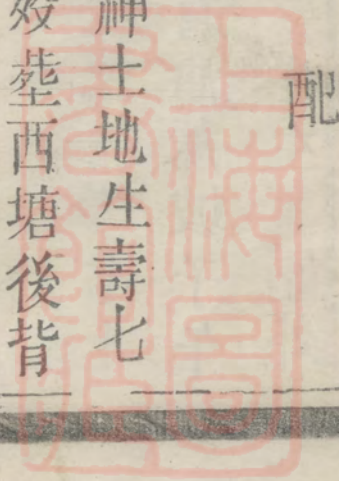 配
神土地生壽七
歿塟西塘後背
上海圖
書館藏